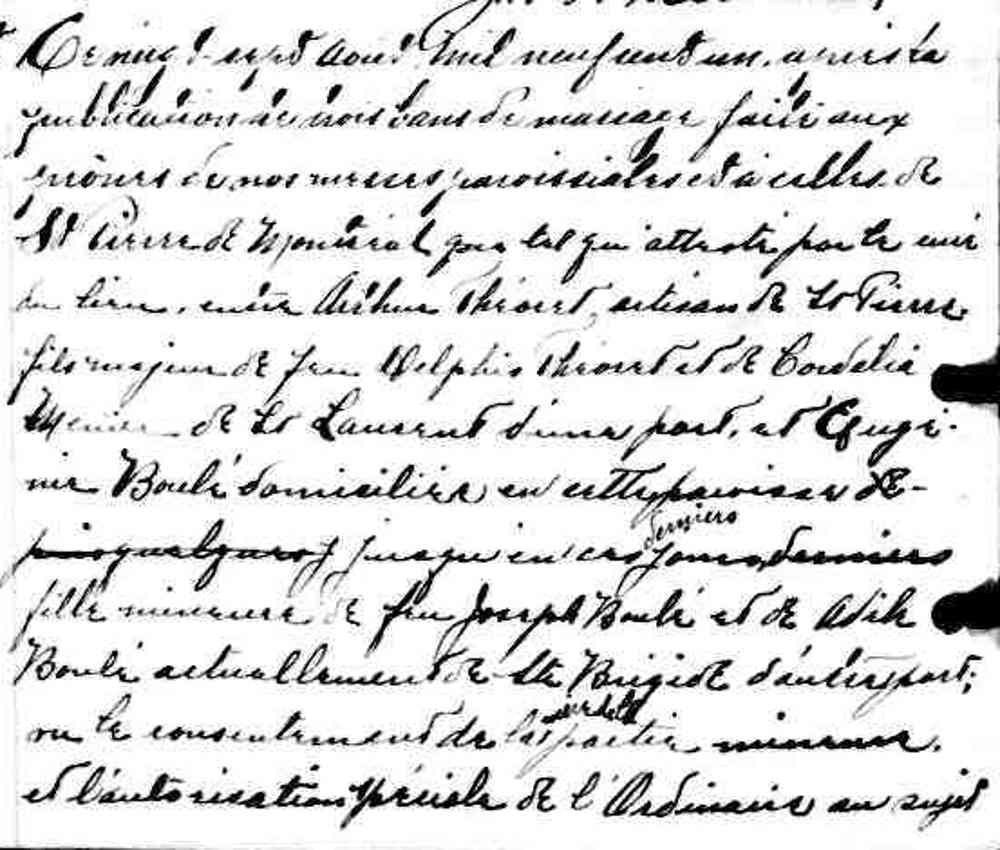 Ce vingt-sept Août mil neuf cent un, après la
publication de trois bans de mariage faite aux
prônes de nos messes paroissiales et à celles de
St Pierre de Montréal tel qu'attesté par le curé
du lieu, entre Arthur Théoret, artisan de St Pierre
fils majeur de feu Delphis Théoret et de Cordelia
de St Laurent d'une part, et Eugé-
nie Boulé domiciliée en cette paroisse de-
puis quelques jusqu'en ces jours derniers derniers
fille mineure de feu Joseph Boulé et de Adèle
Boulé actuellement de Ste Brigide d'autre part;
vu le consentement de la partie mineure,
et l'autorisation spéciale de l'Ordinaire au sujet